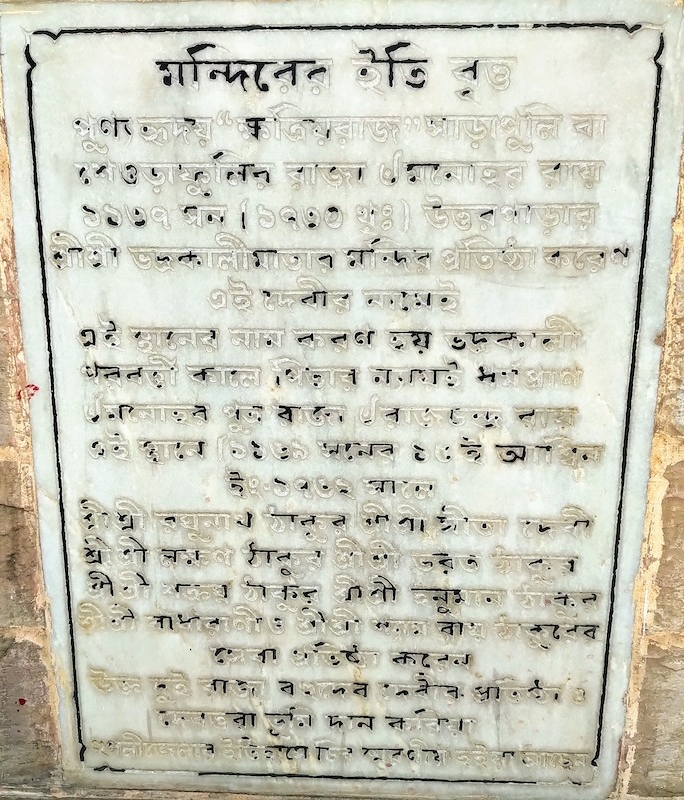 মন্দিরের ইতি বৃত্ত
পুণ্য হৃদয় “ক্ষত্রিয়রাজ” সাড়াপুলি বা
শেওড়াফুলির রাজা ৺মনোহর রায়
১১৩৭ সন (১৭৩০ খৃঃ) উত্তরপাড়ার
শ্রীশ্রী ভদ্রকালীমাতার মন্দির প্রতিষ্ঠা করেন
এই দেবীর নামেই
এই স্থানের নাম করণ হয় ভদ্রকালী
পরবর্ত্তী কালে পিতার ন্যায়ই ধর্মপ্রাণ
৺মনোহর পুত্র রাজা ৺রাজচন্দ্র রায়
এই স্থানে সনের ই আশ্বিন
ইং-১৭৩২ সালে
শ্রীশ্রী রঘুনাথ ঠাকুর শ্রীশ্রী সীতা দেবী
শ্রীশ্রী লক্ষণ ঠাকুর শ্রীশ্রী ভরত ঠাকুর
শ্রীশ্রী শত্রুঘ্ন ঠাকুর শ্রীশ্রী হনুমান ঠাকুর
শ্রীশ্রী রাধারাণী ও শ্রীশ্রী শ্যাম রায় ঠাকুরের
সেবা প্রতিষ্ঠা করেন
উক্ত দুই রাজা বহুদেব দেবীর প্রতিষ্ঠা ও
দেবোত্তর ভূমি দান করিয়া
হুগলীজেলার ইতিহাসে চির স্মরণীয় হইয়া আছেন